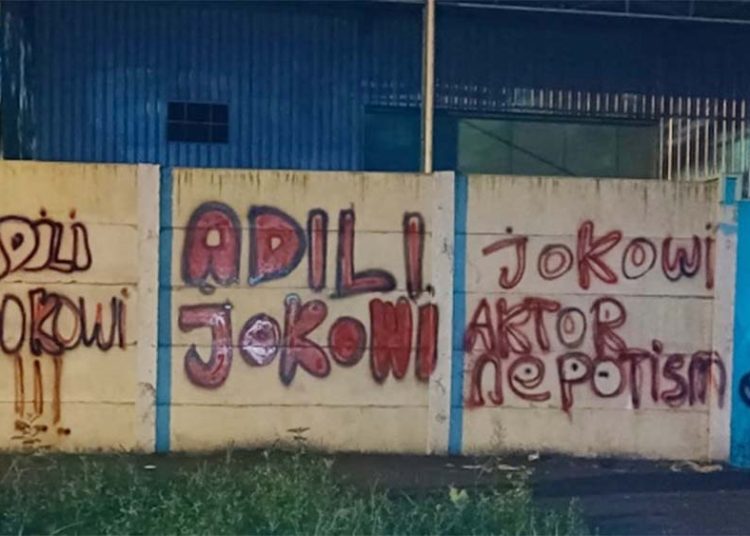 ADILI
JOKOWI
!!!
ADILI
JOKOWI
JOKOWI
AKTOR
nePOTism